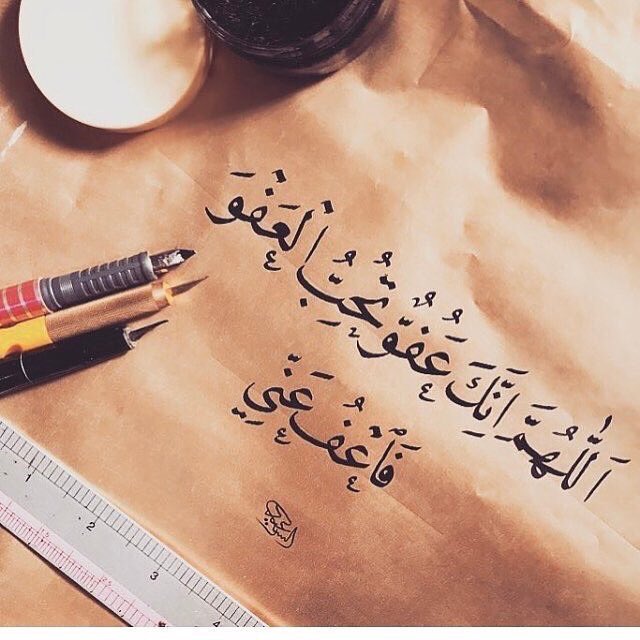 اَللّٰهُمَّ اِنَّكَ عَفُوٌّ تُحِبُّ الْعَفْوَ
فَاْعْفُ عَنِّي
1
2
3
4